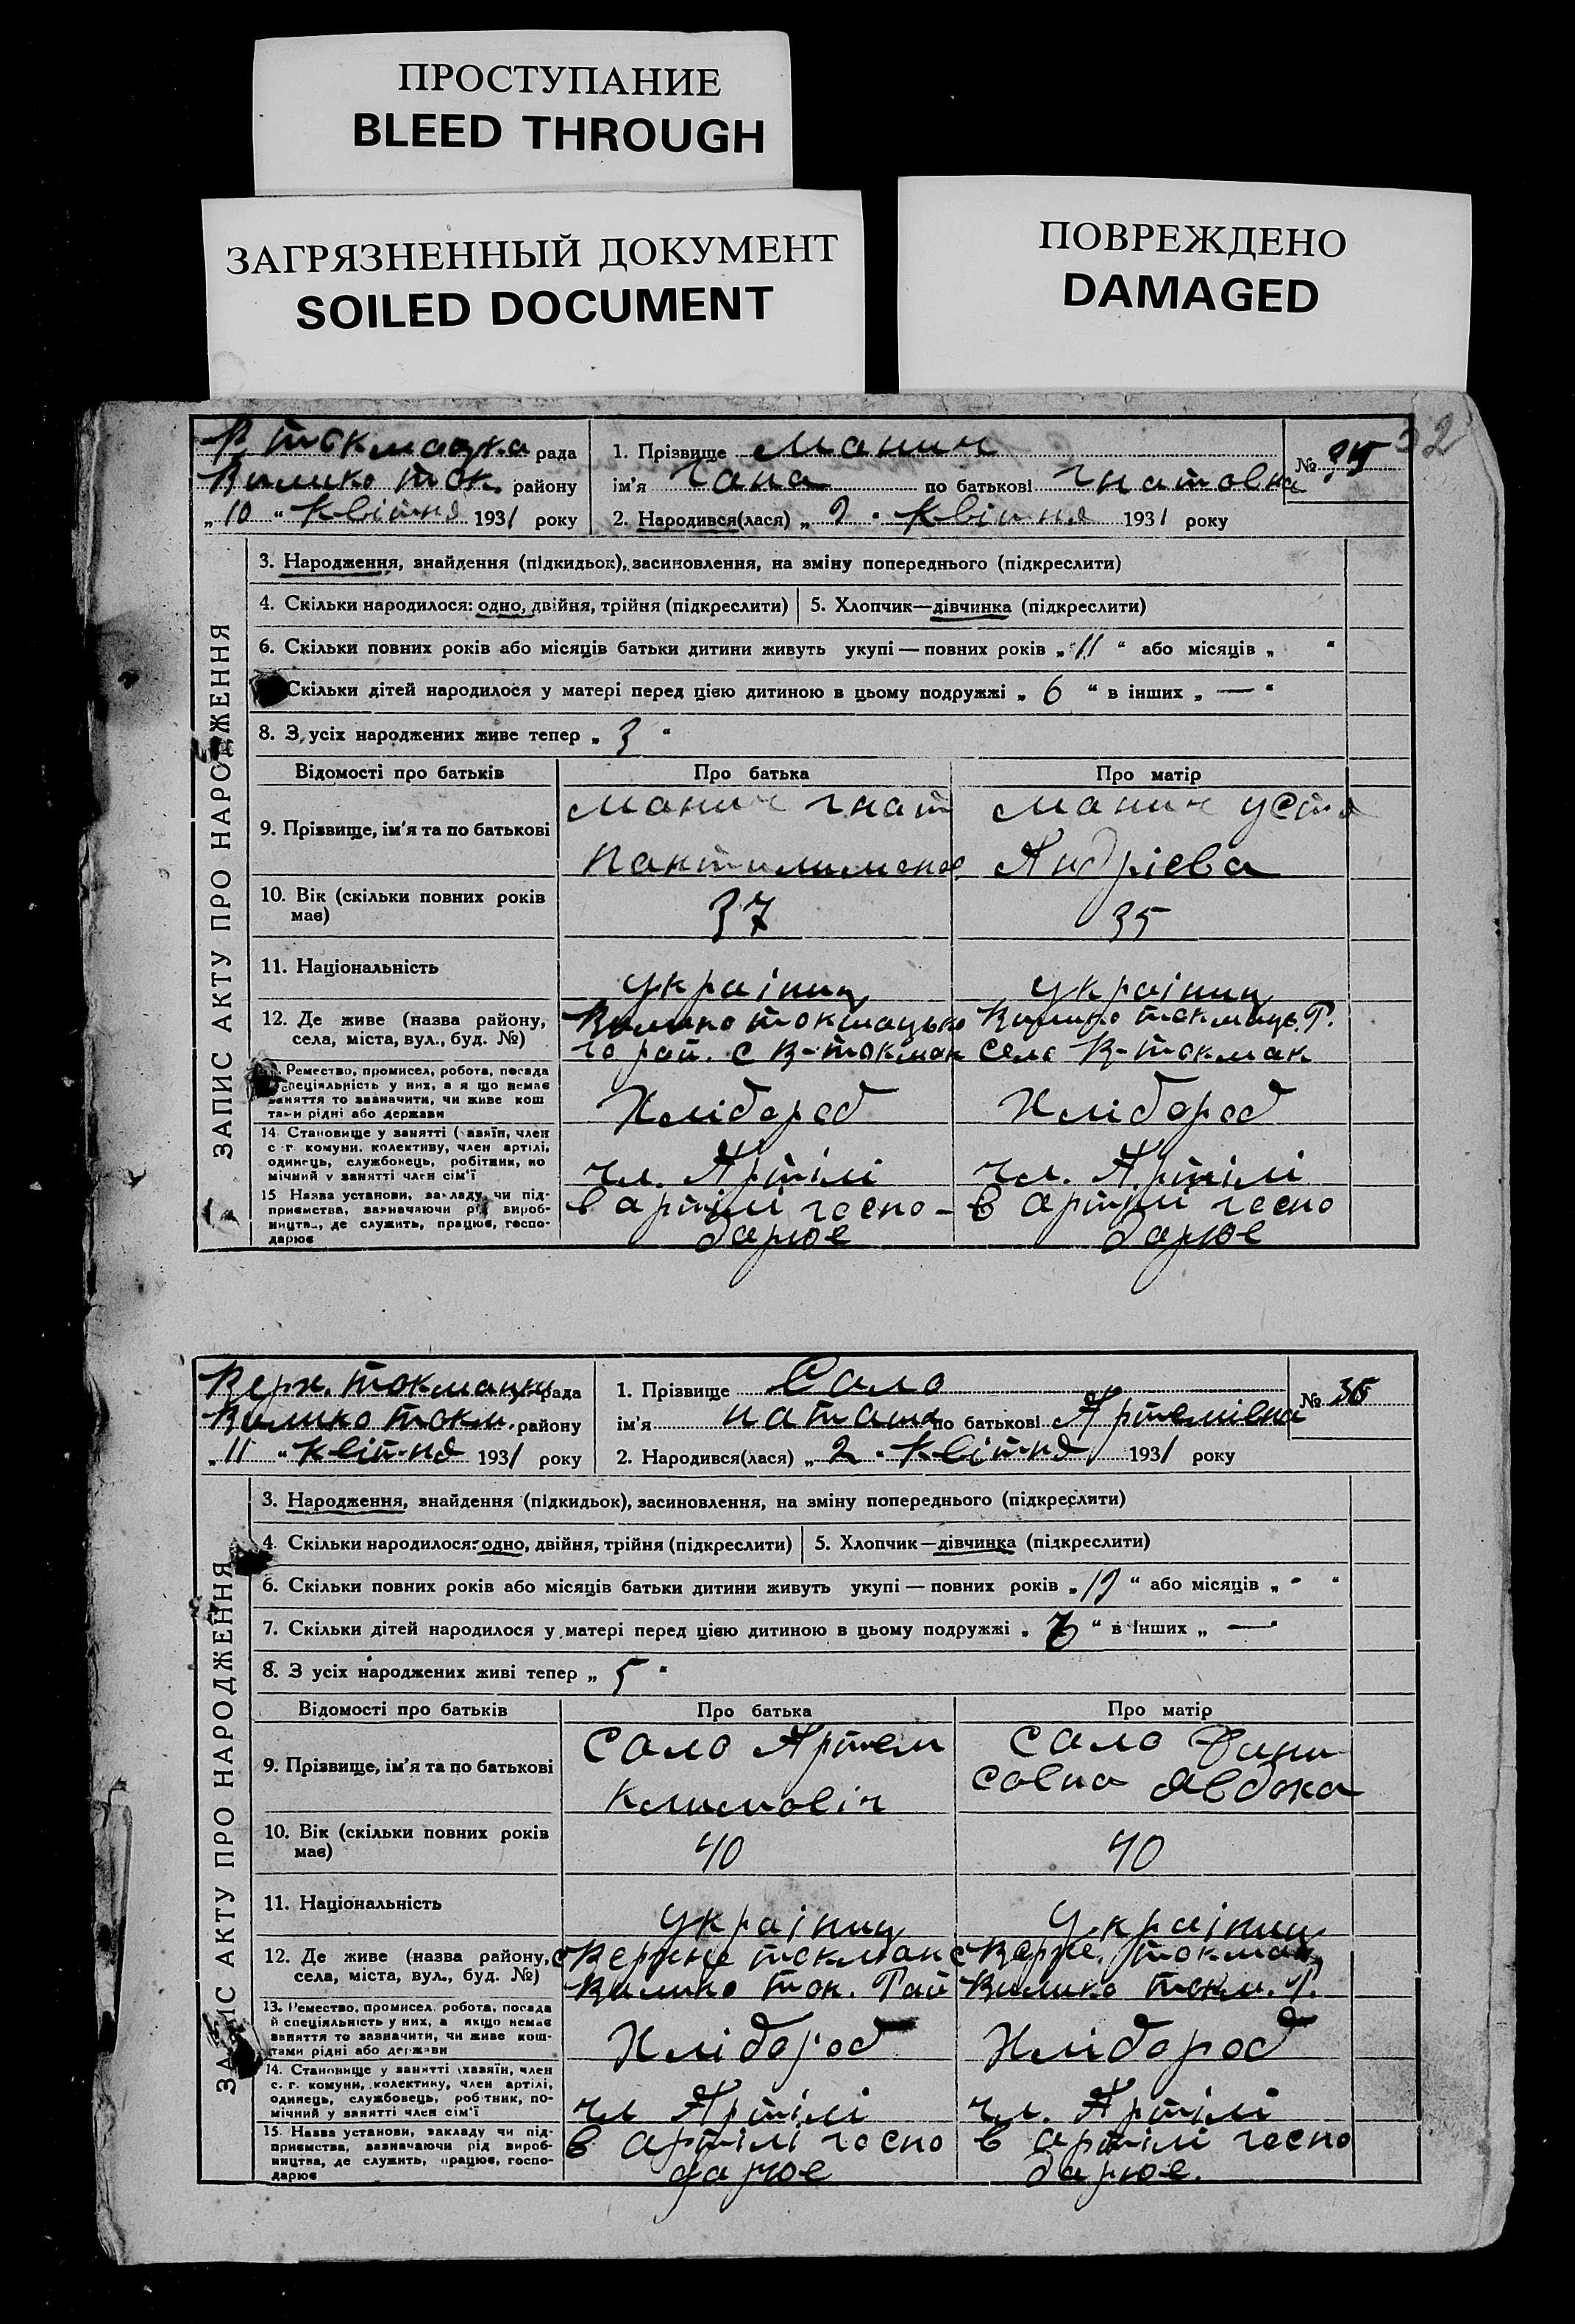 ПРОСТУПАНИЕ
BLEED THROUGH
ЗАГРЯЗНЕННЫЙ ДОКУМЕНТ
SOILED DOCUMENT
ПОВРЕЖДЕНО
DAMAGED
32
рада
1. Прізвище Манич
№ 35
Вилико ток. району
ім'я Гана по батькові Гнатовна
„10“ квітня 1931 року
2. Народився(лася) „ “ квітня 1931 року
ЗАПИС АКТУ ПРО НАРОДЖЕННЯ
3. Народження, знайдення (підкидьок), засиновлення, на зміну попереднього (підкреслити)
4. Скільки народилося: одно, двійня, трійня (підкреслити)
5. Хлопчик—дівчинка (підкреслити)
6. Скільки повних років або місяців батьки дитини живуть укупі — повних років „11“ або місяців „ “
Скільки дітей народилося у матері перед цією дитиною в цьому подружжі „6“ в інших „—“
8. З усіх народжених живе тепер „3“
Відомості про батьків
Про батька
Про матір
9. Прізвище, ім'я та по батькові
Манич Гнат
Манич Устя
Андріева
10. Вік (скільки повних років має)
37
35
11. Національність
україниц
україниц
12. Де живе (назва району, села, міста, вул., буд. №)
Вилико токмацько
го рай. с В-токмак
Вилико токмаць. Р.
село В-токмак
Ремество, промисел, робота, посада
спеціяльність у них, а я що немає
заняття то зазначити, чи живе кош
тами рідні або держави
Хлібороб
Хлібороб
14 Становище у занятті (хазяїн, член
с г. комуни, колективу, член артілі,
одинець, службовець, робітник, по
мічний у занятті член сім'ї
чл. Артілі
чл. Артілі
15 Назва установи, закладу чи під-
приємства, зазначаючи рід вироб-
ництва, де служить, працює, госпо-
дарює
в артілі госпо-
дарює
в артілі госпо
дарює
Верх. токмацьк рада
1. Прізвище Сало
№ 36
Вилико токм. району
ім'я наташа по батькові Артемівна
„11“ квітня 1931 року
2. Народився(лася) „2“ квітня 1931 року
ЗАПИС АКТУ ПРО НАРОДЖЕННЯ
3. Народження, знайдення (підкидьок), засиновлення, на зміну попереднього (підкреслити)
4. Скільки народилося: одно, двійня, трійня (підкреслити)
5. Хлопчик—дівчинка (підкреслити)
6. Скільки повних років або місяців батьки дитини живуть укупі — повних років „ “ або місяців „-“
7. Скільки дітей народилося у матері перед цією дитиною в цьому подружжі „ “ в інших „—“
8. З усіх народжених живі тепер „5“
Відомості про батьків
Про батька
Про матір
9. Прізвище, ім'я та по батькові
Сало Артем
Климовіч
Сало Дини
совна Явдоха
10. Вік (скільки повних років має)
40
40
11. Національність
україниц
україниц
12. Де живе (назва району, села, міста, вул., буд. №)
с Верхне токмак
Вилико ток. Рай
с Верхне. токмак
Вилико токм. Р.
13. Ремество, промисел, робота, посада
й спеціяльність у них, а якщо немає
заняття то зазначити, чи живе кош-
тами рідні або держави
Хлібороб
Хлібороб
14. Становище у занятті (хазяїн, член
с. г. комуни, колективу, член артілі,
одинець, службовець, робітник, по-
мічний у занятті член сім'ї
чл Артілі
чл. Артілі
15. Назва установи, закладу чи під-
приємства, зазначаючи рід вироб-
ництва, де служить, працює, госпо-
дарює
в артілі госпо
дарює
в артілі госпо
дарює.